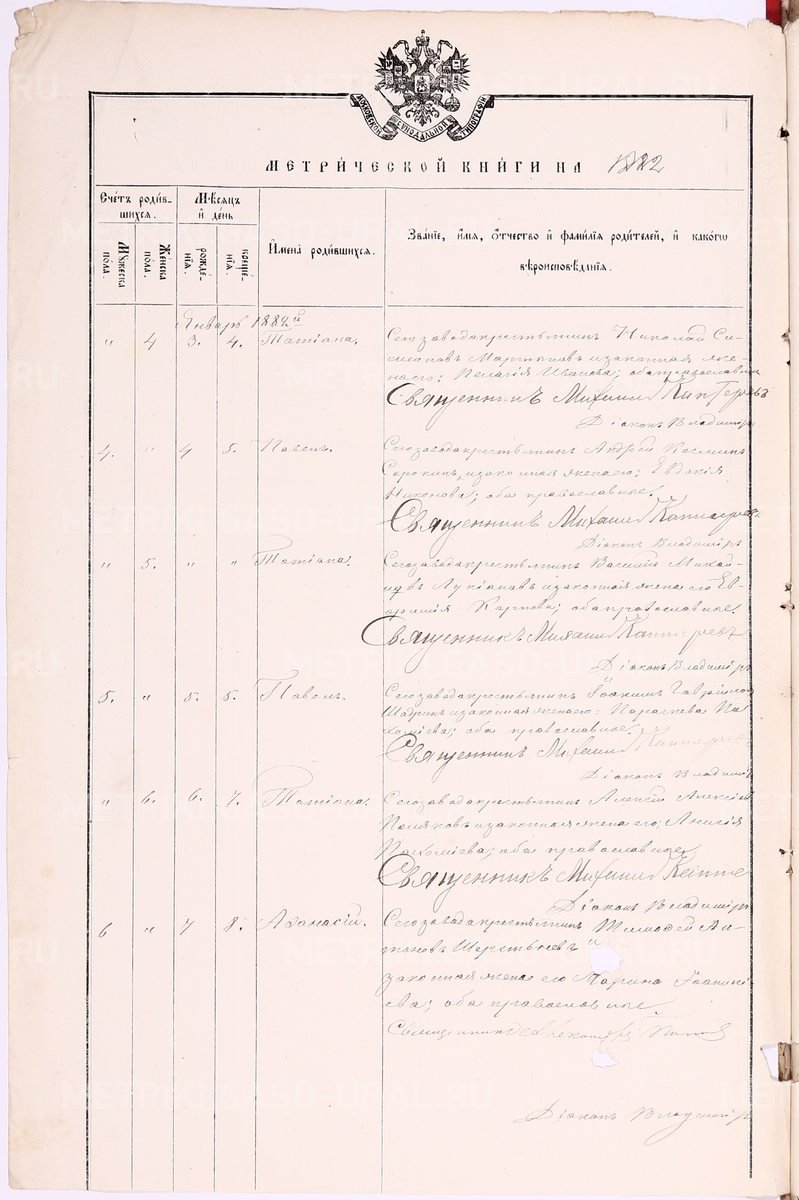 МОСКОВСКОЙ СѴНОДАЛЬНОЙ ТИПОГРАФІИ
МЕТРИ́ЧЕСКОЙ КНИ́ГИ НА 1882
Сче́тъ роди́в-
шихся.
Мѣсяцъ
и҆ де́нь
Мꙋжеска
по́ла.
Же́нска
пола.
рожде́-
нїѧ.
креще́-
нїѧ.
И҆мена̀ роди́вшихся.
Зва́нїе, и҆́мѧ, ѻ҆́тчество и҆ фами́лїѧ роди́телей, и҆ како́гѡ
вѣроисповѣ́данїѧ.
Январь 1882й
" 4 3. 4. Татіана. Сегозаводакрестьянинъ Николай Си-
меоновъ Мартюковъ изаконная же-
наего; Пелагія Иванова; обаправославные
Священникъ Михаилъ Каптеревъ
Діаконъ Владиміръ
4. " 4 5. Павелъ. Сегозаводакрестьянинъ Андрей Козминъ
Сорокинъ, изаконная женаего; Евдакія
Никонова; оба православные.
Священникъ Михаилъ Каптеревъ.
Діаконъ Владиміръ
" 5. " " Татіана. Сегозаводакрестьянинъ Василій Михай-
ловъ Лукіановъ изаконная жена его Ев-
фимія Карпова; обаправославные.
Священникъ Михаилъ Каптеревъ
Діаконъ Владиміръ
5. " 5. 5. Павелъ. Сегозаводакрестьянинъ Іоакимъ Гаврііловъ
изаконная женаего: Параскева Па-
хоміева; оба православные.
Священникъ Михаилъ Каптеревъ
Діаконъ Владимір
" 6. 6. 7. Татіана. Сегозаводакрестьянинъ Алексій Алексіевъ
Поляковъ изаконная жена его; Анисія
Пахоміева; оба православные
Священникъ Михаилъ Капте
Діаконъ Владиміръ
6 " 7 8. Аѳанасій. Сегозаводакрестьянинъ Тимофей Ан-
тоновъ и
законная жена его Марина Іоанні-
ева; оба православные.
Священникъ Александръ Поповъ
Діаконъ Владиміръ